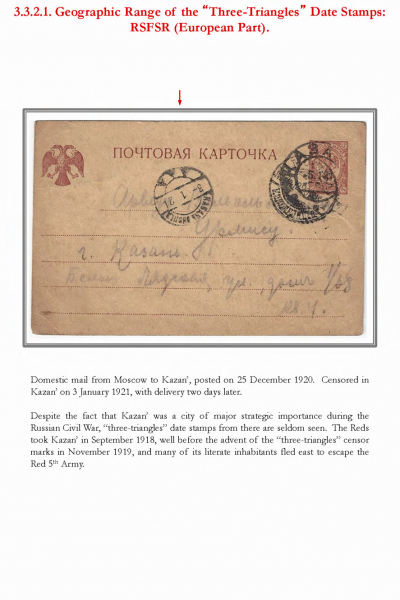 3.3.2.1. Geographic Range of the “Three-Triangles” Date Stamps:
RSFSR (European Part).
ПОЧТОВАЯ КАРТОЧКА
г. Казань
ул.
Domestic mail from Moscow to Kazan’, posted on 25 December 1920. Censored in
Kazan’ on 3 January 1921, with delivery two days later.
Despite the fact that Kazan’ was a city of major strategic importance during the
Russian Civil War, “three-triangles” date stamps from there are seldom seen. The Reds
took Kazan’ in September 1918, well before the advent of the “three-triangles” censor
marks in November 1919, and many of its literate inhabitants fled east to escape the
Red 5th Army.